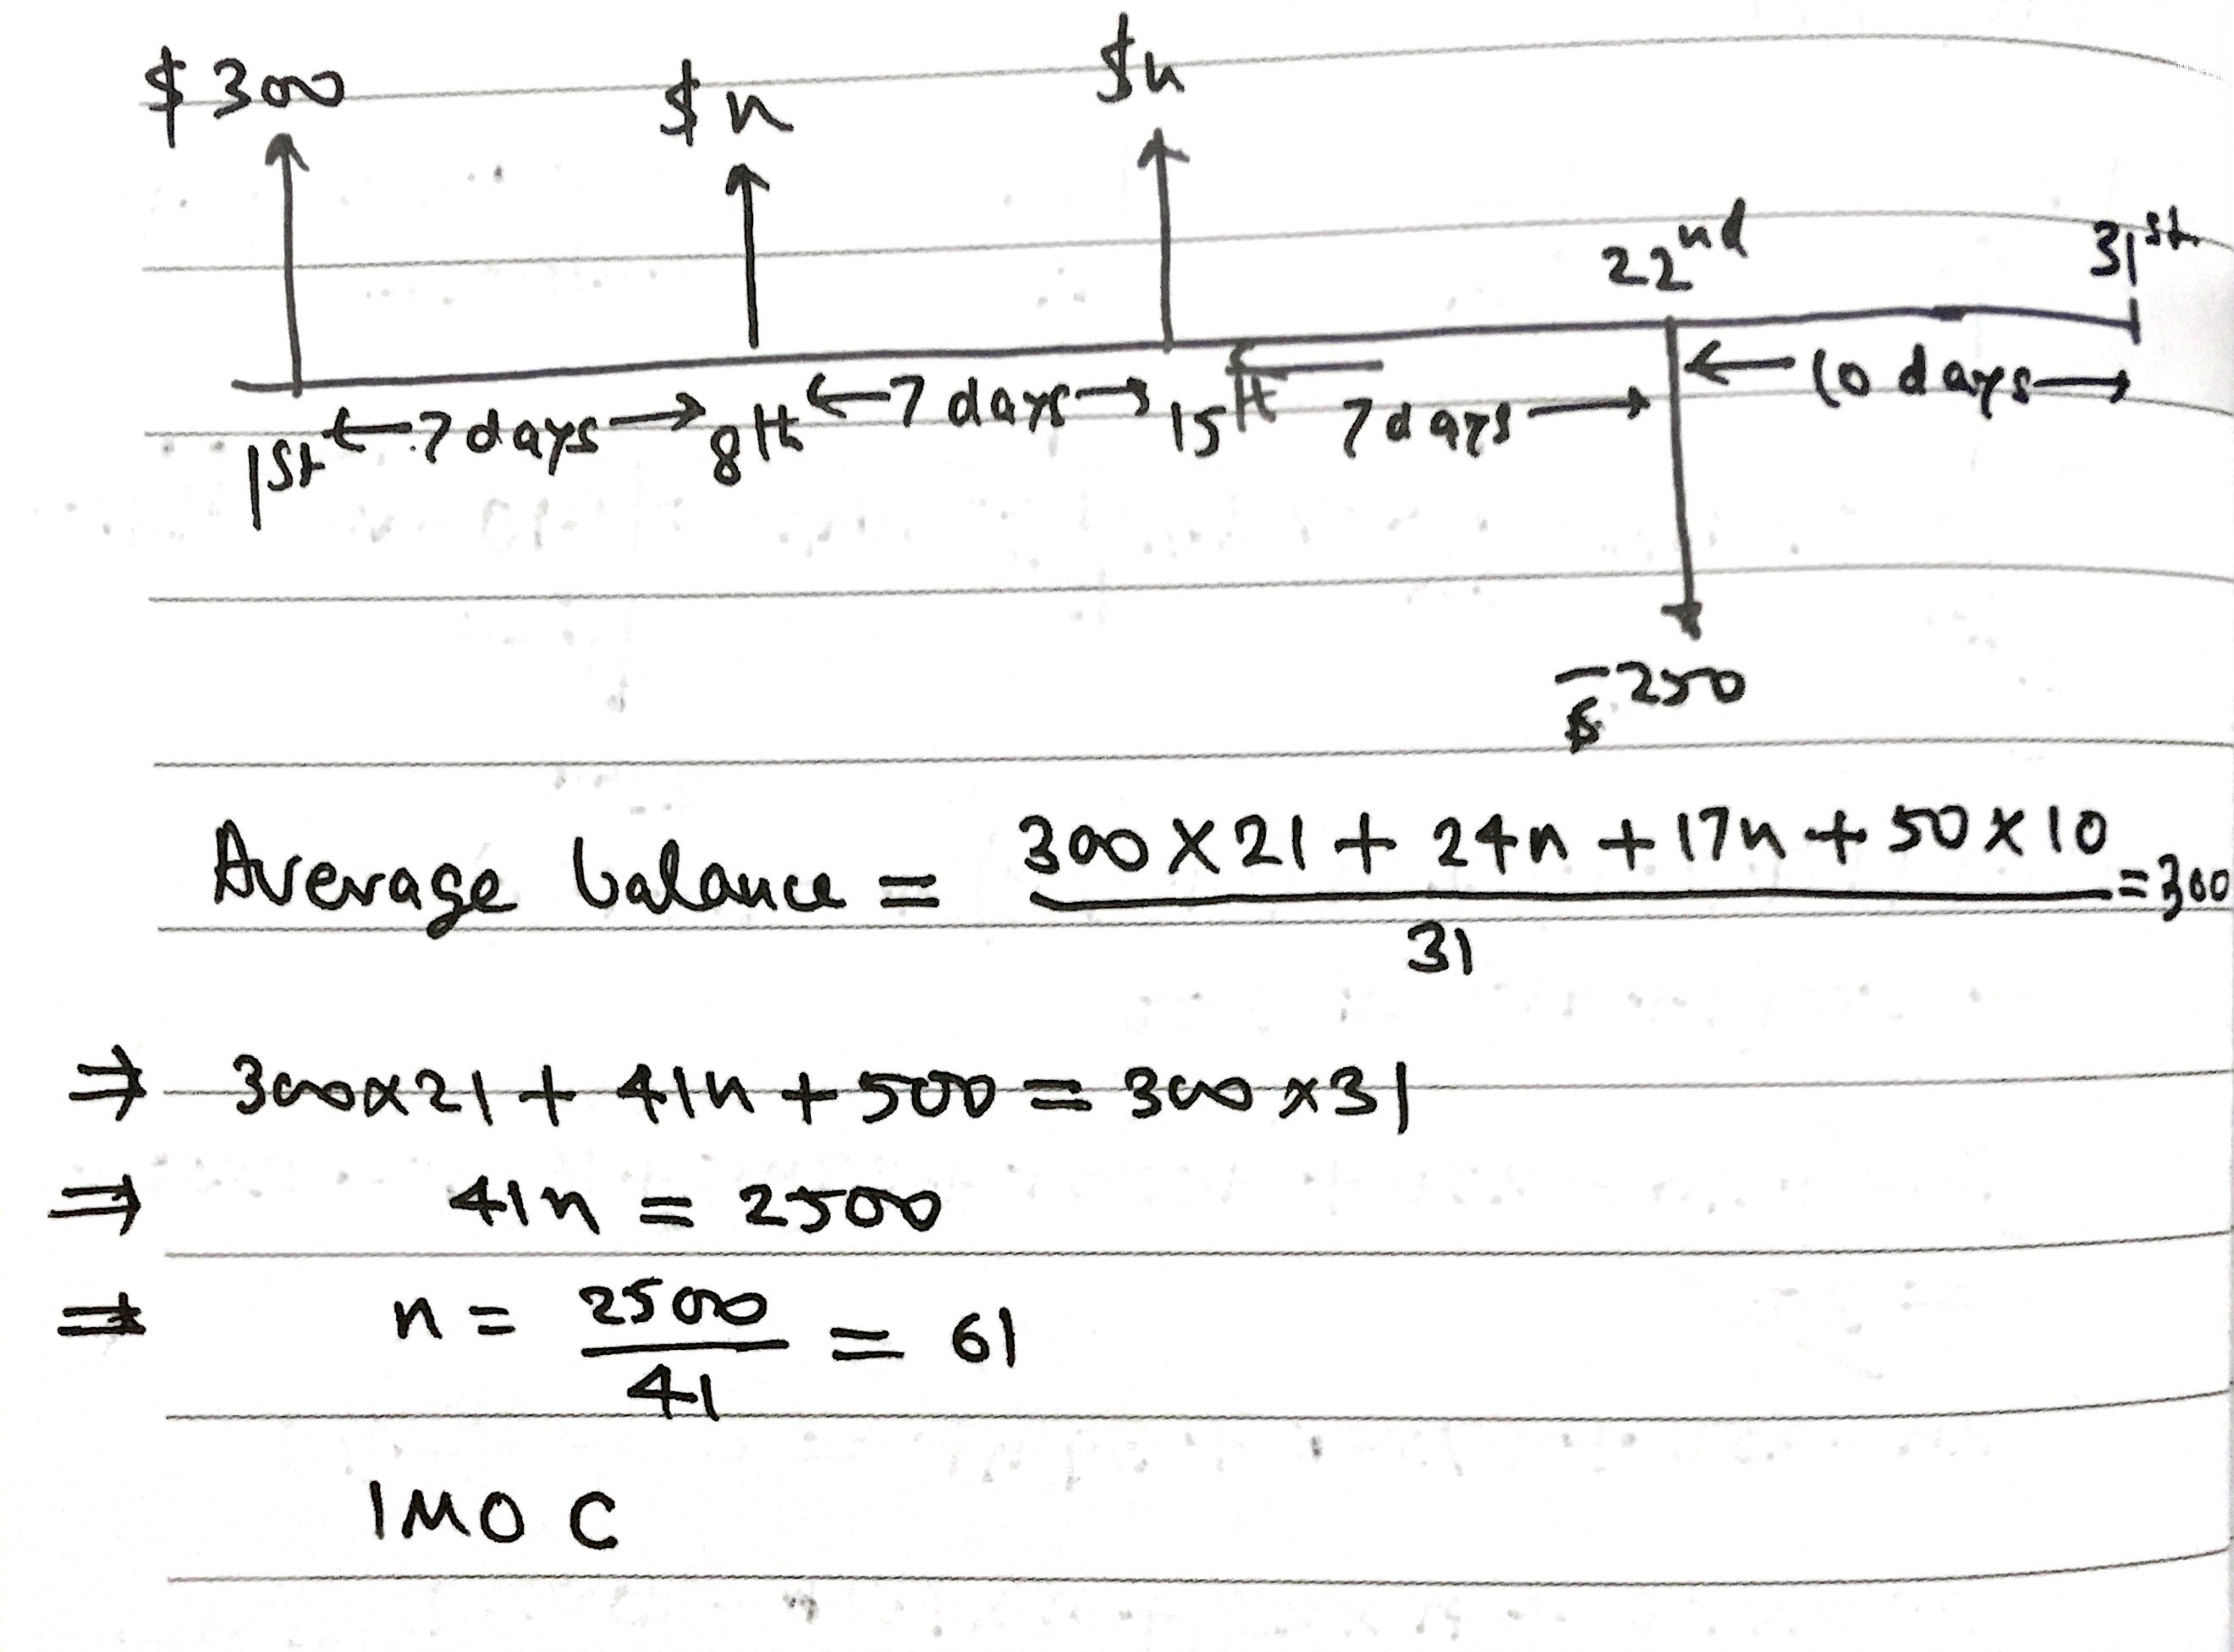 $300 $n $n
22nd 31st
1st ←7 days→ 8th ←7 days→ 15th ← 7 days → ← 10 days →
-$250
Average balance = 300 × 21 + 24n + 17n + 50 × 10 = 300
31
⇒ 300×21 + 41n + 500 = 300 ×31
⇒ 41n = 2500
⇒ n = 2500 = 61
41
IMO C